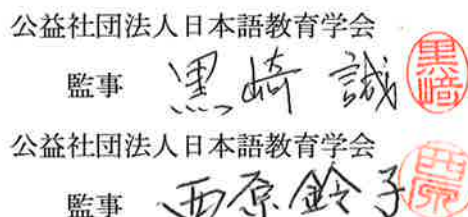 公益社団法人日本語教育学会
監事 黒崎 誠 黒崎
公益社団法人日本語教育学会
監事 西原鈴子 西原